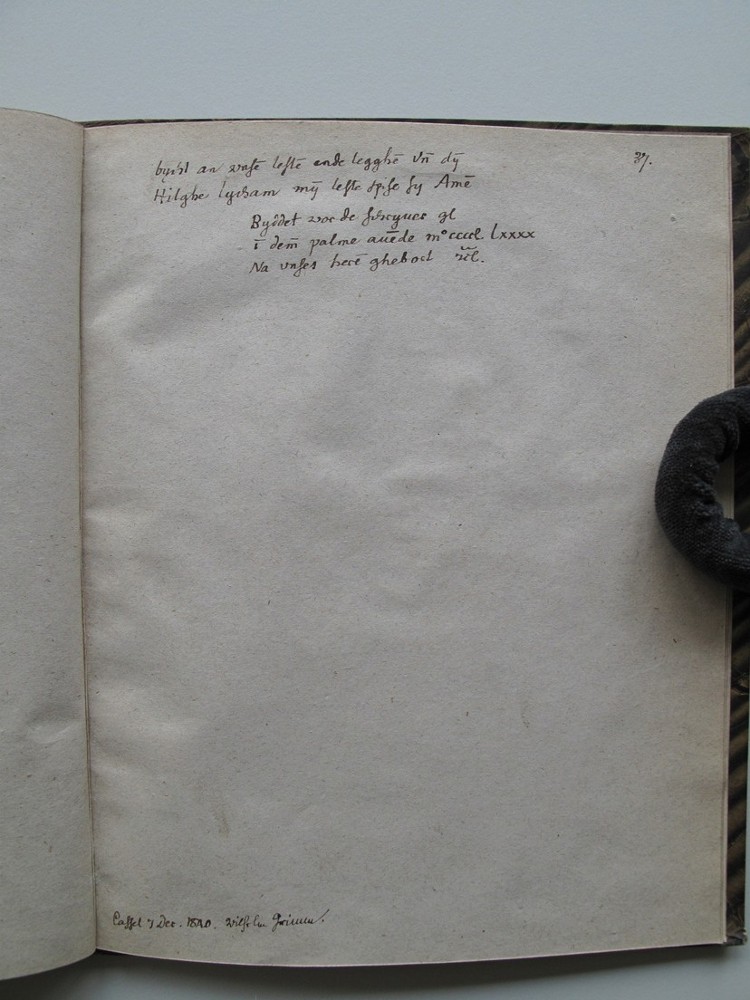 37.
bycht an vnsē leste ende legghē vn̄ dȳ
Hilghe lycham mȳ leste spise sy Amē
Byddet vor de scryuer gl
ī dem̄ palme auēde m°cccc lxxxx
Na vnses herē ghebort
Cassel 7 Dec. 1820. Wilhelm Grimm.